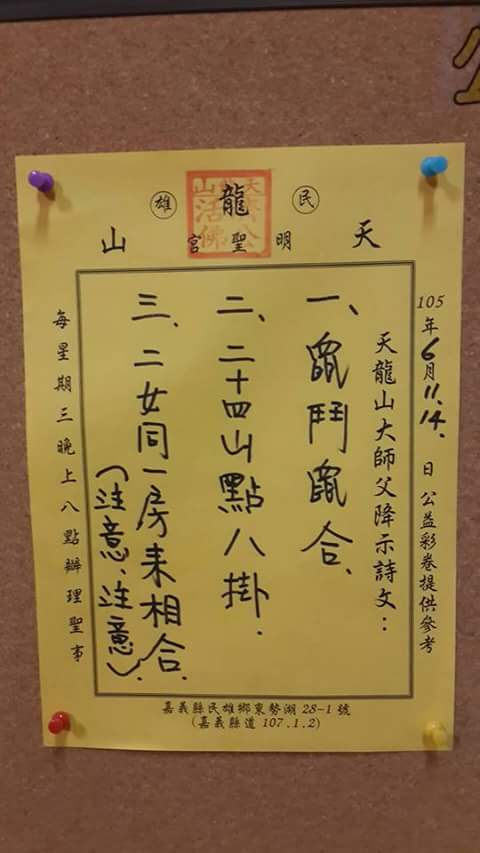 民雄
天龍山
明聖宮
天龍山
濟公
活佛
105年6月11.14.日 公益彩卷提供參考
天龍山大師父降示詩文：
一、鼠鬥鼠合.
二、二十四山點八掛.
三、二女同一房来相合.
(注意、注意).
每星期三晚上八點辦理聖事
嘉義縣民雄鄉東勢湖28-1號
(嘉義縣道107.1.2)